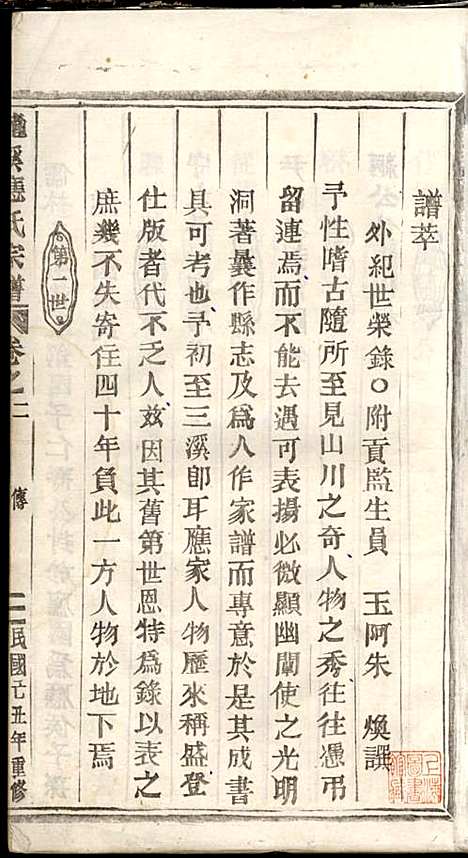 譜萃
外紀世榮錄〇附貢監生員 玉阿朱 煥譔
予性嗜古隨所至見山川之奇人物之秀往往憑弔
留連焉而不能去遇可表揚必微顯幽闡使之光明
洞著曩作縣志及爲人作家譜而專意於是其成書
具可考也予初至三溪卽耳應家人物歷來稱盛登
仕版者代不乏人玆因其舊第世恩特爲錄以表之
庶幾不失寄任四十年負此一方人物於地下焉
第一世
溪應氏宗譜 卷之二 傳 二 民國丁丑年重修